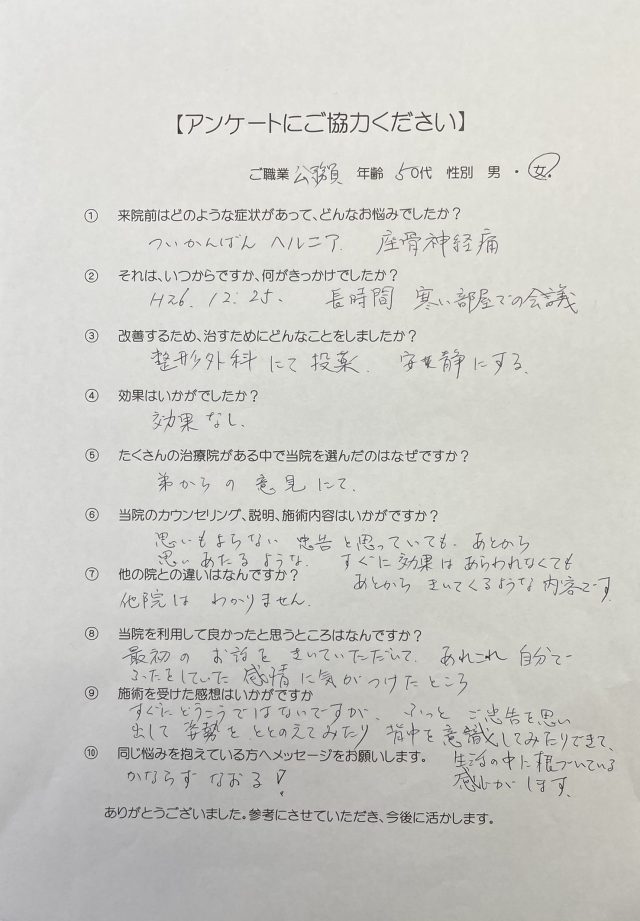 【アンケートにご協力ください】
ご職業 公務員 年齢 50代 性別 男 ・ 女
① 来院前はどのような症状があって、どんなお悩みでしたか？
ついかんばん ヘルニア. 座骨神経痛
② それは、いつからですか、何がきっかけでしたか？
H26.12.25. 長時間 寒い部屋での会議
③ 改善するため、治すためにどんなことをしましたか？
整形外科 にて 投薬. 安静にする.
④ 効果はいかがでしたか？
効果なし.
⑤ たくさんの治療院がある中で当院を選んだのはなぜですか？
弟からの 意見 にて.
⑥ 当院のカウンセリング、説明、施術内容はいかがですか？
思いもよらない 忠告と思っていても. あとから
思いあたるような. すぐに効果はあらわれなくても
あとから きいてくるような内容です.
⑦ 他の院との違いはなんですか？
他院は わかりません.
⑧ 当院を利用して良かったと思うところはなんですか？
最初の お話を きいていただいて. あれこれ 自分で
ふたをしていた 感情 に気がつけたところ
⑨ 施術を受けた感想はいかがですか
すぐにどうこうではないですが. ふっと ご忠告を思い
出して 姿勢を ととのえてみたり 背中を意識してみたりできて、
生活の中に根づいている
感じがします.
⑩ 同じ悩みを抱えている方へメッセージをお願いします。
かならず なおる!
ありがとうございました。参考にさせていただき、今後に活かします。